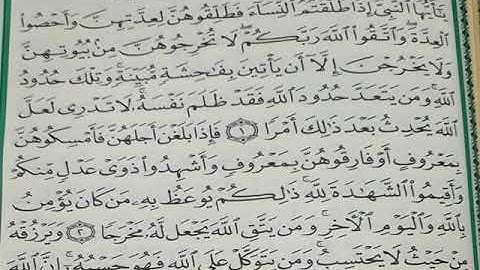 يَٰٓأَيُّهَا ٱلنَّبِىُّ إِذَا طَلَّقْتُمُ ٱلنِّسَآءَ فَطَلِّقُوهُنَّ لِعِدَّتِهِنَّ وَأَحْصُوا۟
ٱلْعِدَّةَ ۖ وَٱتَّقُوا۟ ٱللَّهَ رَبَّكُمْ ۖ لَا تُخْرِجُوهُنَّ مِنۢ بُيُوتِهِنَّ
وَلَا يَخْرُجْنَ إِلَّآ أَن يَأْتِينَ بِفَٰحِشَةٍ مُّبَيِّنَةٍ ۚ وَتِلْكَ حُدُودُ
ٱللَّهِ ۚ وَمَن يَتَعَدَّ حُدُودَ ٱللَّهِ فَقَدْ ظَلَمَ نَفْسَهُۥ ۚ لَا تَدْرِى لَعَلَّ
ٱللَّهَ يُحْدِثُ بَعْدَ ذَٰلِكَ أَمْرًا ١ فَإِذَا بَلَغْنَ أَجَلَهُنَّ فَأَمْسِكُوهُنَّ
بِمَعْرُوفٍ أَوْ فَارِقُوهُنَّ بِمَعْرُوفٍ وَأَشْهِدُوا۟ ذَوَىْ عَدْلٍ مِّنكُمْ
وَأَقِيمُوا۟ ٱلشَّهَٰدَةَ لِلَّهِ ۚ ذَٰلِكُمْ يُوعَظُ بِهِۦ مَن كَانَ يُؤْمِنُ
بِٱللَّهِ وَٱلْيَوْمِ ٱلْـَٔاخِرِ ۚ وَمَن يَتَّقِ ٱللَّهَ يَجْعَل لَّهُۥ مَخْرَجًا ٢ وَيَرْزُقْهُ
مِنْ حَيْثُ لَا يَحْتَسِبُ ۚ وَمَن يَتَوَكَّلْ عَلَى ٱللَّهِ فَهُوَ حَسْبُهُۥٓ ۚ إِنَّ ٱللَّهَ